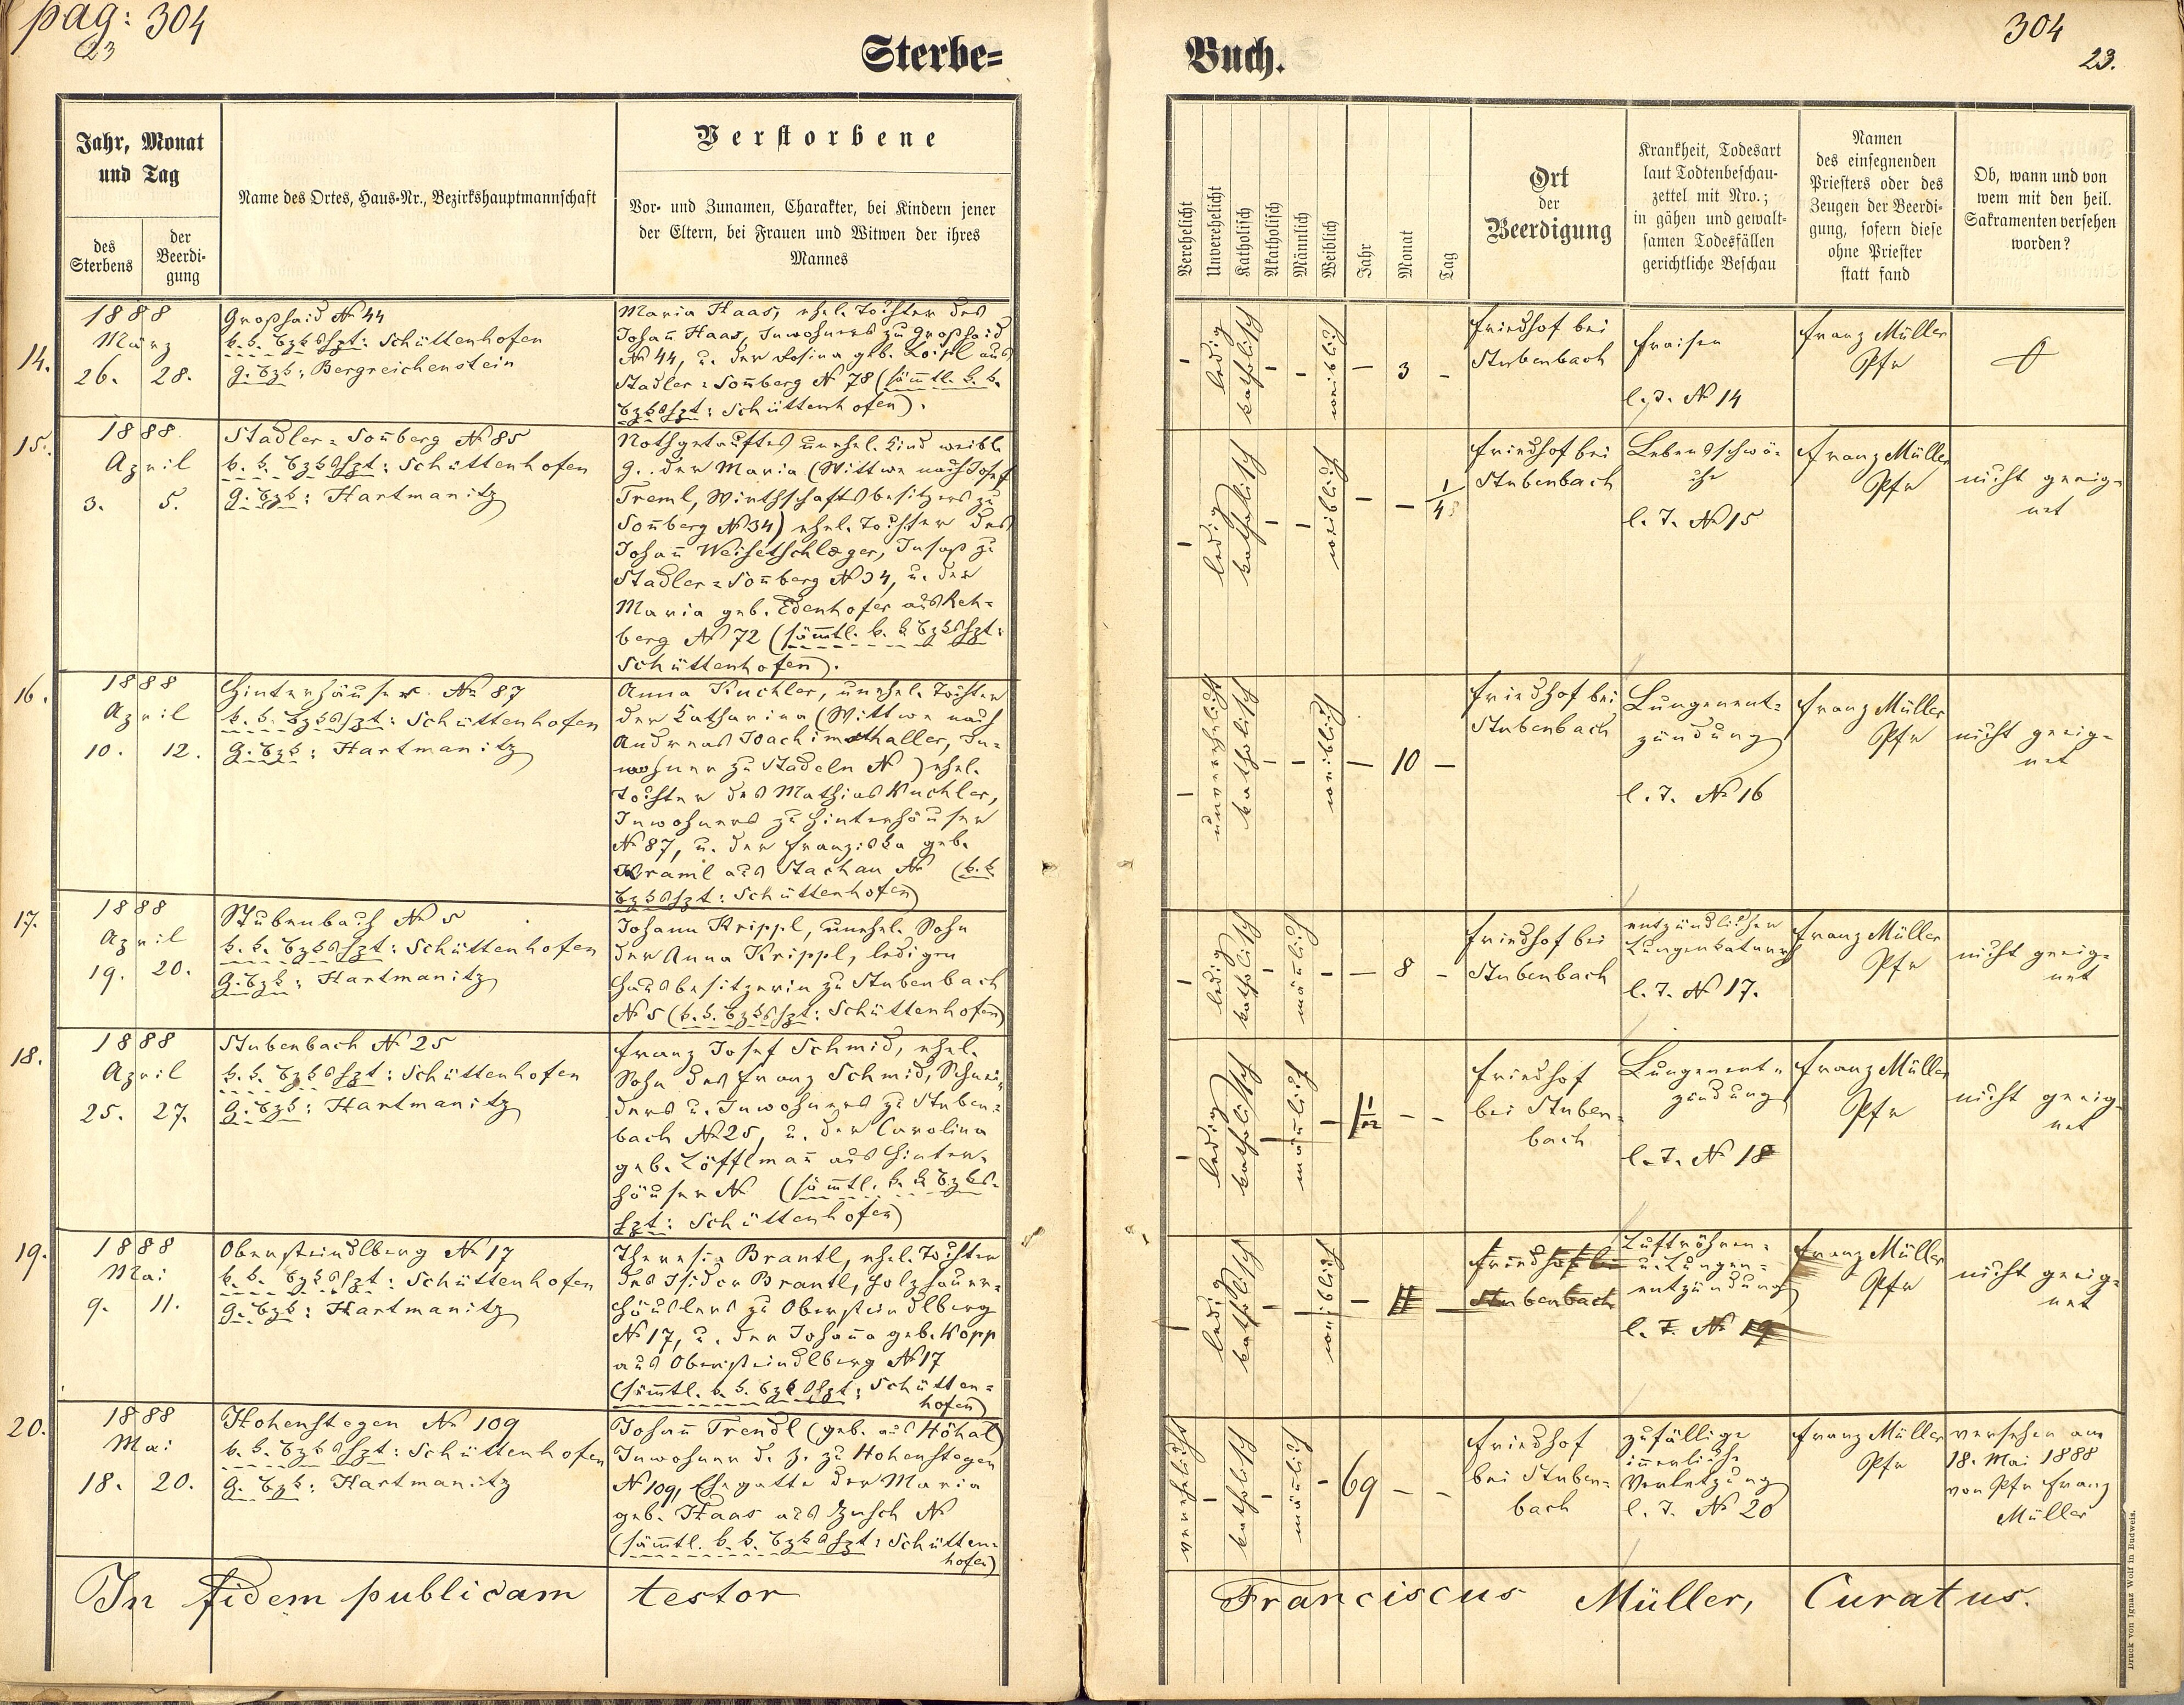 pag: 304
23
Sterbe=
Jahr, Monat
und Tag
des
Sterbens
der
Beerdi-
gung
Name des Ortes, Haus-Nr., Bezirkshauptmannschaft
Verstorbene
Vor- und Zunamen, Charakter, bei Kindern jener
der Eltern, bei Frauen und Witwen der ihres
Mannes
14.
1888
März
26. 28.
Großhaid № 44
k. k. Bzkshpt: Schüttenhofen
G. Bzk: Bergreichenstein
Maria Haas, ehel. Tochter des
Johañ Haas, Inwohners zu Großhaid
№ 44, u. der Rosina geb. aus
Stadler=Soñberg № 78 (sämtl. k. k.
Bzkshpt: Schüttenhofen).
15.
1888
April
3. 5.
Stadler=Soñberg № 85
k. k. Bzkshpt: Schüttenhofen
G. Bzk: Hartmanitz
Nothgetauftes unehel. Kind weibl.
G. der Maria (Wittwe nach Josef
Treml, Wirthschaftsbesitzers zu
Soñberg № 34) ehel. Tochter des
Johañ Weishetschläger, Insaß zu
Stadler=Soñberg № 34, u. der
Maria geb. Edenhofer aus Reh=
berg № 72 (sämtl. k. k. Bzkshpt:
Schüttenhofen).
16.
1888
April
10. 12.
Hinterhäuser № 87
k. k. Bzkshpt: Schüttenhofen
G. Bzk: Hartmanitz
Anna Kuchler, unehel. Tochter
der Katharina (Wittwe nach
Andreas Joachimsthaller, In=
wohner zu Stadeln № ) ehel.
Tochter des Mathias Kuchler,
Inwohners zu Hinterhäuser
№ 87, u. der Franziska geb.
Kraml aus Stachau № (k. k.
Bzkshpt: Schüttenhofen)
17.
1888
April
19. 20.
Stubenbach № 5
k. k. Bzkshpt: Schüttenhofen
G. Bzk: Hartmanitz
Johann Krippl, unehel. Sohn
der Anna Krippl, ledigen
Hausbesitzerin zu Stubenbach
№ 5 (k. k. Bzkshpt: Schüttenhofen)
18.
1888
April
25. 27.
Stubenbach № 25
k. k. Bzkshpt: Schüttenhofen
G. Bzk: Hartmanitz
Franz Josef Schmid, ehel.
Sohn des Franz Schmid, Schnei=
ders u. Inwohners zu Stuben=
bach № 25, u. der Carolina
geb. Löfflmañ aus Hinter=
häuser № (sämtl. k. k. Bzks=
hpt: Schüttenhofen)
19.
1888
Mai
9. 11.
Obersteindlberg № 17
k. k. Bzkshpt: Schüttenhofen
G. Bzk: Hartmanitz
Theresia Brantl, ehel. Tochter
des Isidor Brantl, Holzhauer=
häuslers zu Obersteindlberg
№ 17, u. der Johaña geb. Kopp
aus Obersteindlberg № 17
(sämtl. k. k. Bzkshpt: Schütten=
hofen)
20.
1888
Mai
18. 20.
Hohenstegen № 109
k. k. Bzkshpt: Schüttenhofen
G. Bzk: Hartmanitz
Johañ Trendl (geb. aus Höhal)
Inwohner d. Z. zu Hohenstegen
№ 109, Ehegatte der Maria
geb. Haas aus №
(sämtl. k. k. Bzkshpt: Schütten=
hofen)
In fidem publicam testor
304
23.
Buch.
Verehelicht
Unverehelicht
Katholisch
Akatholisch
Männlich
Weiblich
Jahr
Monat
Tag
Ort
der
Beerdigung
Krankheit, Todesart
laut Todtenbeschau-
zettel mit Nro.;
in gähen und gewalt-
samen Todesfällen
gerichtliche Beschau
Namen
des einsegnenden
Priesters oder des
Zeugen der Beerdi-
gung, sofern diese
ohne Priester
statt fand
Ob, wann und von
wem mit den heil.
Sakramenten versehen
worden?
- ledig katholisch - - weiblich - 3 -
Friedhof bei
Stubenbach
Fraisen
l. T. № 14
Franz Müller
Pfr
- ledig katholisch - - weiblich - -
Friedhof bei
Stubenbach
Lebensschwä=
che
l. T. № 15
Franz Müller
Pfr
nicht geeig=
net
- unverehelicht katholisch - - weiblich - 10 -
Friedhof bei
Stubenbach
Lungenent=
zündung
l. T. № 16
Franz Müller
Pfr
nicht geeig=
net
- ledig katholisch - mäñlich - - 8 -
Friedhof bei
Stubenbach
entzündlicher
Lungenkatarrh
l. T. № 17.
Franz Müller
Pfr
nicht geeig=
net
- ledig katholisch - mäñlich - - -
Friedhof
bei Stuben=
bach
Lungenent=
zündung
l. T. № 18
Franz Müller
Pfr
nicht geeig=
net
- ledig katholisch - - weiblich - -
Friedhof bei
Stubenbach
Luftröhren=
u. Lungen=
entzündung
l. T. № 19
Franz Müller
Pfr
nicht geeig=
net
verehelicht - katholisch - mäñlich - 69 - -
Friedhof
bei Stuben=
bach
zufällige
iñerliche
Verletzung
l. T. № 20
Franz Müller
Pfr
versehen am
18. Mai 1888
von Pfr Franz
Müller
Franciscus Müller, Curatus.
Druck von Ignaz Wolf in Budweis.